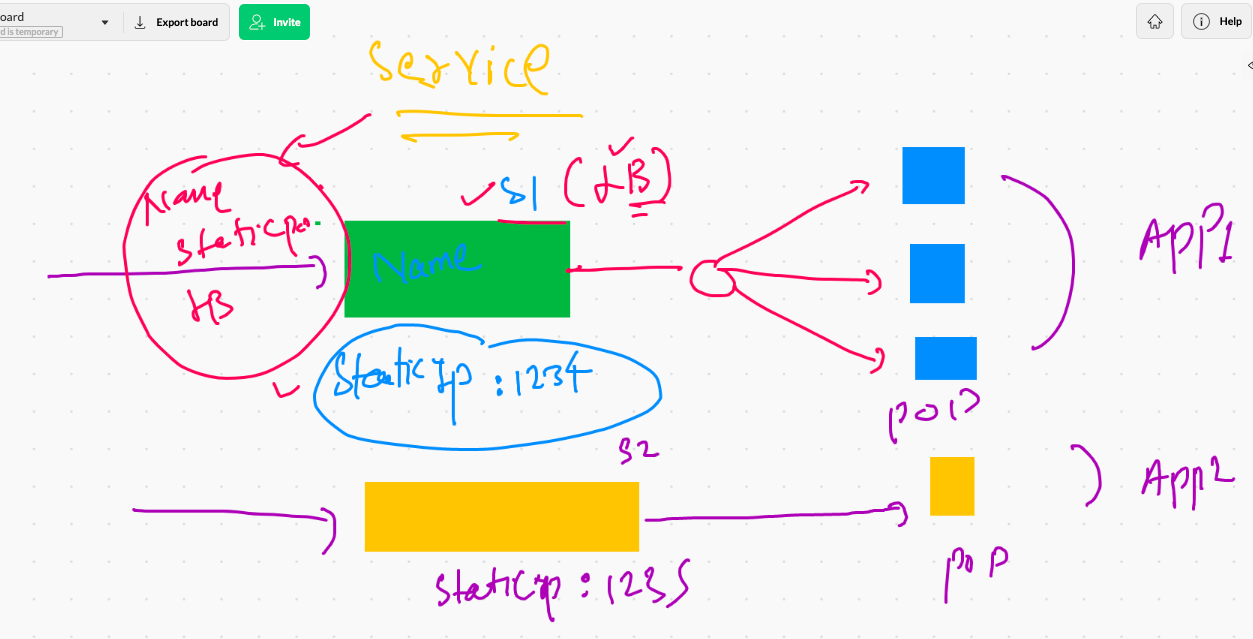 oard
d is temporary
Export board
Invite
Help
Service
Name
Staticip
LB
S1 (LB)
Name
Staticip : 1234
APP1
POD
S2
App2
Staticip : 1235
POD